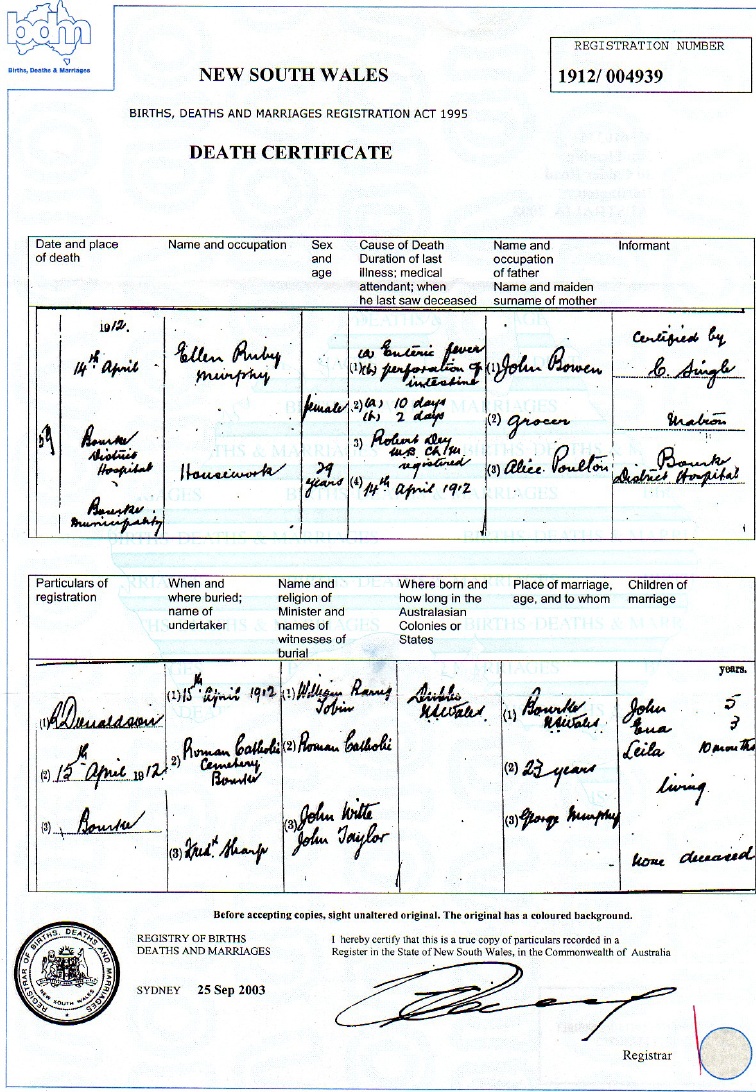 bdm
Births, Deaths & Marriages
REGISTRATION NUMBER
1912/ 004939
NEW SOUTH WALES
BIRTHS, DEATHS AND MARRIAGES REGISTRATION ACT 1995
DEATH CERTIFICATE
Date and place
of death
Name and occupation
Sex
and
age
Cause of Death
Duration of last
illness; medical
attendant; when
he last saw deceased
Name and
occupation
of father
Name and maiden
surname of mother
Informant
1912.
14th April
Bourke
District
Hospital
Bourke
Municipality
Ellen Ruby
Murphy
Housework
female
29
years
(1) (a) Enteric fever
(b) perforation of
intestine
2) (a) 10 days
(b) 2 days
3) Robert Dey
M.B. Ch.M
registered
(4) 14th April 1912
(1) John Bowen
(2) grocer
(3) Alice Poulton
Certified by
C. Single
Matron
Bourke
District Hospital
Particulars of
registration
When and
where buried;
name of
undertaker
Name and
religion of
Minister and
names of
witnesses of
burial
Where born and
how long in the
Australasian
Colonies or
States
Place of marriage,
age, and to whom
Children of
marriage
(1) Donaldson
(2) 15th April 1912
(3) Bourke
(1) 15th April 1912
2) Roman Catholic
Cemetery
Bourke
(3) Fredk Sharp
(1) William
Tobin
(2) Roman Catholic
(3) John Witte
John Taylor
Dubbo
NSWales
(1) Bourke
NSWales
(2) 23 years
(3) George Murphy
years.
John 5
Ena 3
Leila 10 months
living
none deceased
Before accepting copies, sight unaltered original. The original has a coloured background.
REGISTRY OF BIRTHS
DEATHS AND MARRIAGES
SYDNEY 25 Sep 2003
I hereby certify that this is a true copy of particulars recorded in a
Register in the State of New South Wales, in the Commonwealth of Australia
Registrar
REGISTRAR OF BIRTHS, DEATHS AND MARRIAGES
NEW SOUTH WALES